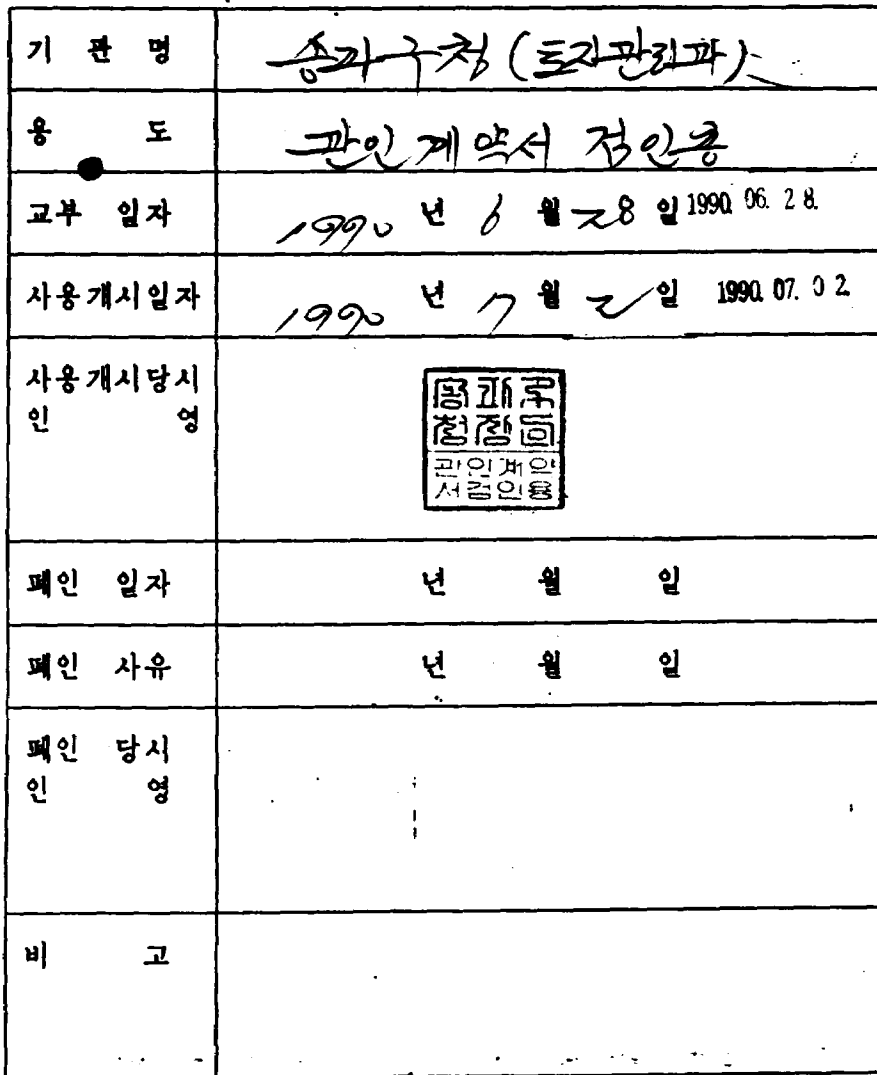 기 관 명 송파구청 (토지관리과)
용 도 관인계약서 검인용
교부 일자 1990 년 6 월 28 일 1990. 06. 28.
사용개시일자 1990 년 7 월 2 일 1990. 07. 02.
사용개시당시
인 영
송파구
청장인
관인계약
서검인용
폐인 일자 년 월 일
폐인 사유 년 월 일
폐인 당시
인 영
비 고